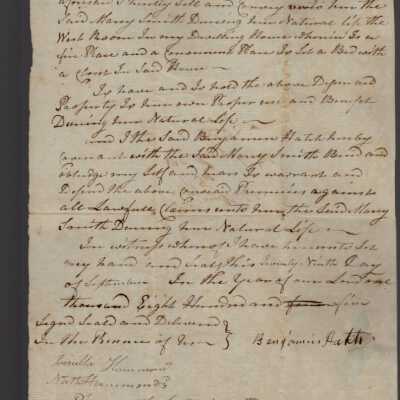 I hereby Sell and Convey unto her the
Said Mary Smith During her Natural life the
West Room In my Dwelling House wherein Is a
fire Place and a Convenient Place To Set a Bed with
a Closet In Said House
To have and To hold the above
Property To her own Proper use and Benefit
During her Natural Life
And I the Said Benjamin Hatch hereby
Covenant with the Said Mary Smith Bind and
obledge my Self and hears To warrant and
Defend the above Premises against
all Lawfull Claims unto her the Said Mary
Smith During her Natural Life
In witness whereof I have hereunto Set
my hand and Seal this Twenty Ninth Day
of September In the Year of our Lord one
thousand Eight Hundred and five
Signd Seald and Delivered
In the Presence of Benjamin Hatch
Hammond
Hammond